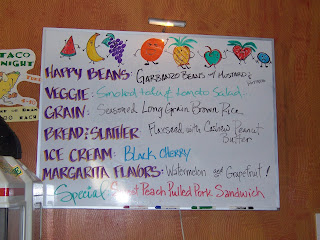 TACO
NIGHT
HAPPY BEANS: GARBANZO BEANS w/ MUSTARD &
VEGGIE: Smoked tofu & Tomato Salad
GRAIN: Seasoned Long Grain Brown Rice
BREAD & SLATHER: Flaxseed with Cashew Peanut
Butter
ICE CREAM: Black Cherry
MARGARITA FLAVORS: Watermelon and Grapefruit!
Special Sweet Peach Pulled Pork Sandwich